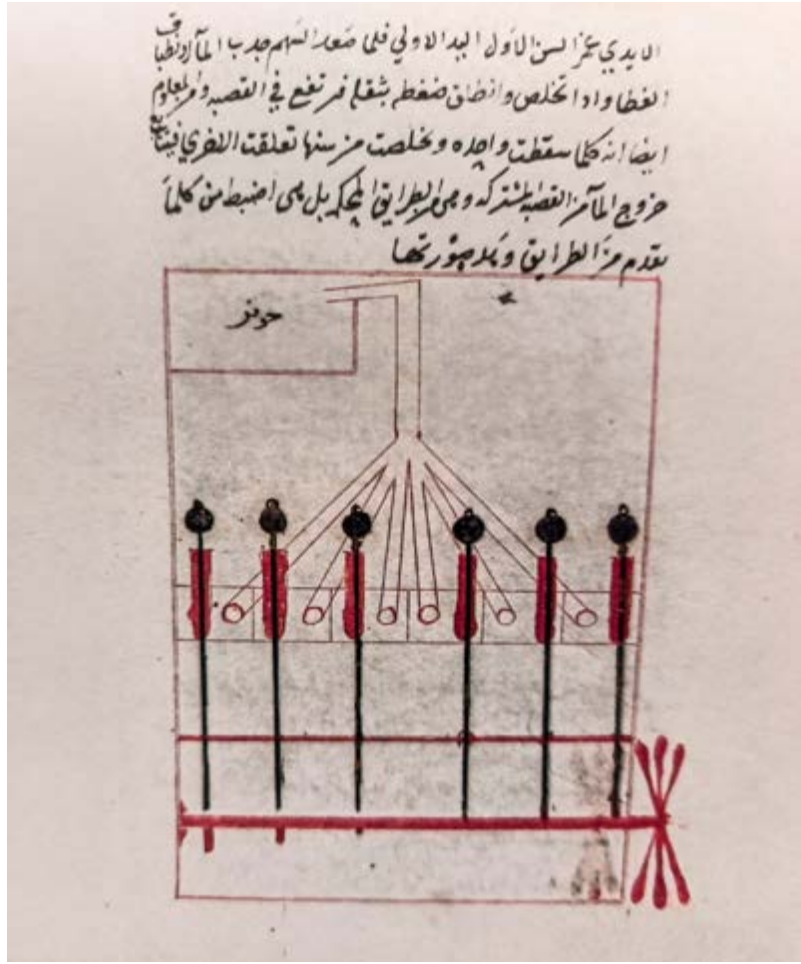 الايدي غمز السن الاول اليد الاولي فلما صعد السهم جدب الماء وانطباق
الغطا وادا تخلص وانطلق ضغطه بثقله فرتفع في القصبه ومن المعلوم
ايضا انه كلما سقطت واحده وتخلصت من سنها تعلقت الاخري فيتتابع
خروج الما من القصبه المشتركه وهي من الطرايق المحكمه بل هي اضبط من كلما
تقدم من الطرايق وهده صورتها
حوض